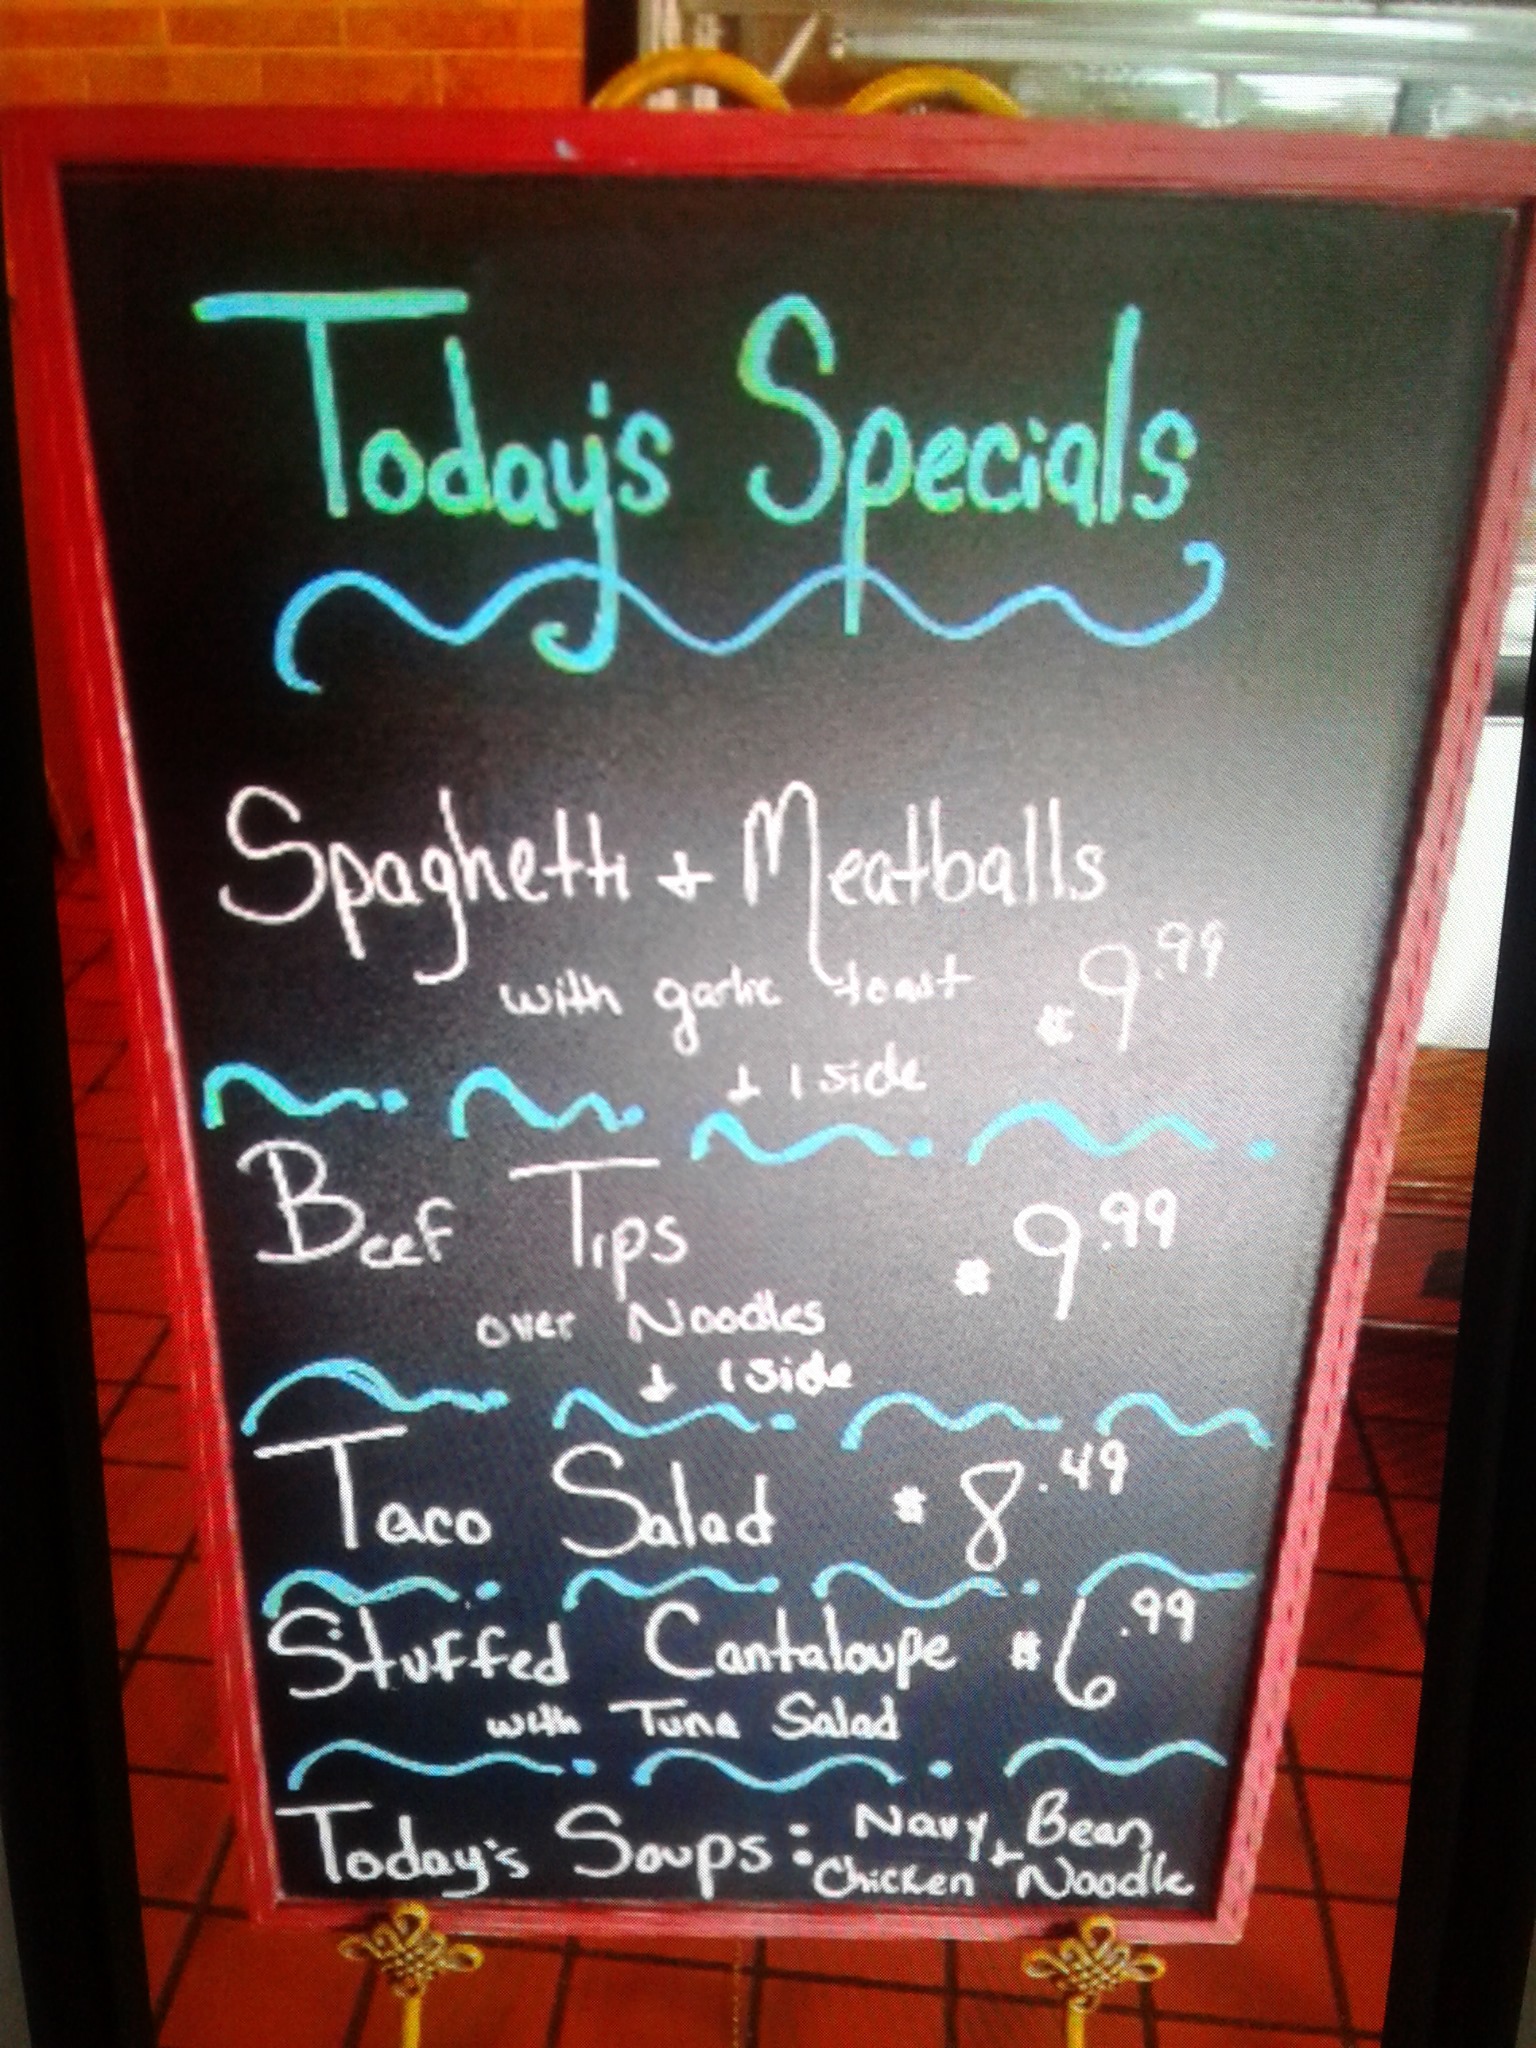 Today's Specials
Spaghetti + Meatballs
with garlic toast $9.99
+ 1 side
Beef Tips $9.99
over Noodles
+ 1 side
Taco Salad $8.49
Stuffed Cantaloupe $6.99
with Tuna Salad
Today's Soups: Navy Bean
+ Chicken Noodle